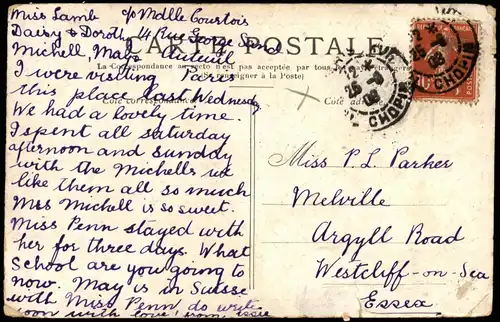 Miss Lamb c/o Mdlle Courtois
Daisy & Doroth 14 Rue George Sand
Michell, May & Auteuil
I were visiting Paris
this place last Wednesday
We had a lovely time.
I spent all saturday
afternoon and sunday
with the Michells we
like them all so much
Mrs Michell is so sweet.
Miss Penn stayed with
her for three days. What
school are you going to
now. May is in Suisse
with Miss Penn do write
soon with love from Essie
CARTE POSTALE
La Correspondance au recto n'est pas acceptée par tous les pays étrangers
(Se renseigner à la Poste)
Côté correspondance
Côté adresse
CHOPIN
CHOPIN
Miss P. L Parker
Melville
Argyll Road
Westcliff-on-Sea
Essex